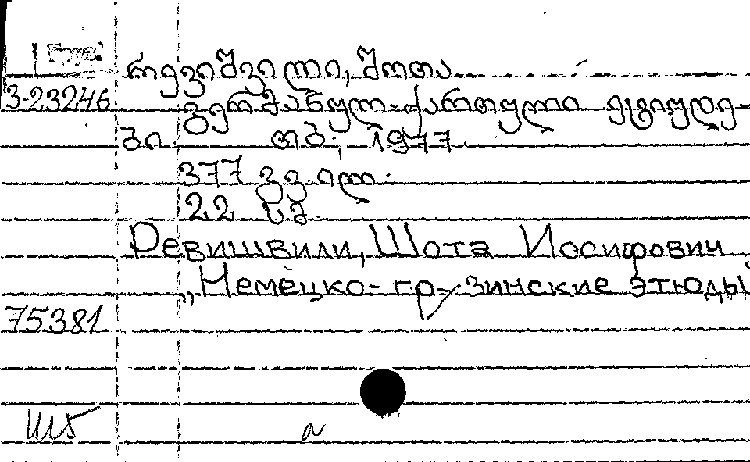 რევიშვილი, შოთა
3-23246 გერმანულ-ქართული ეტიუდე-
ბი. თბ., 1977
377 გვ. ილ.
22 სმ.
Ревишвили, Шота Иосифович
„Немецко-грузинские этюды
75381